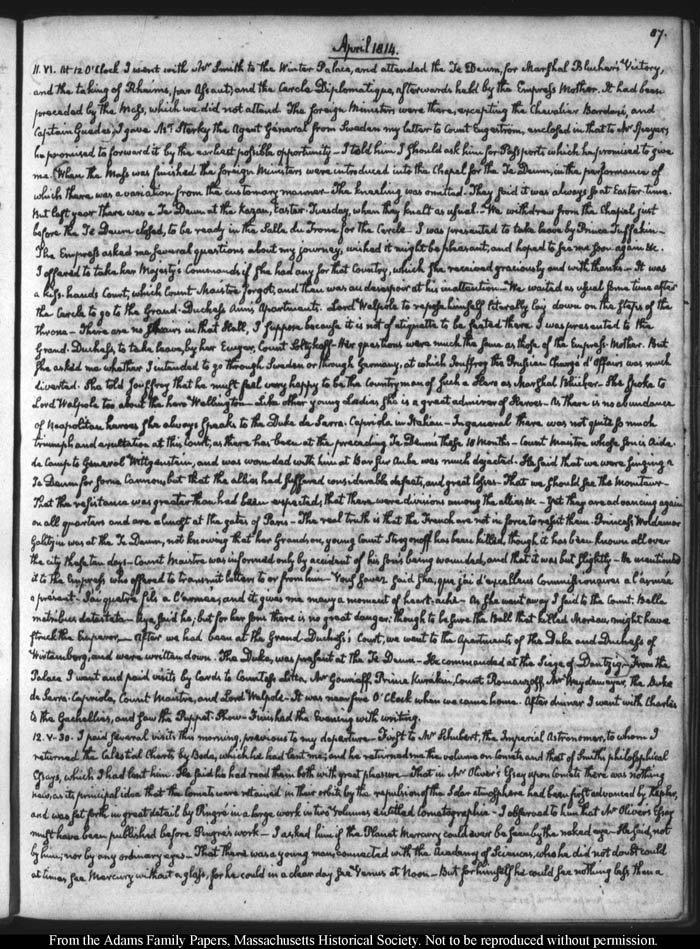 87.
April 1814.
11. VI. At 12 O'Clock I went with Mr Smith to the Winter Palace, and attended the Te Deum, for Marshal Blucher's Victory,
and the taking of Rheims, par Assaut; and the Cercle Diplomatique, afterwards held by the Empress Mother. It had been
preceded by the Mass, which we did not attend. The foreign Ministers were there, excepting the Chevalier Bardaxi, and
Captain Guedes; I gave Mr Sterky the Agent General from Sweden my letter to Count Engestrom, enclosed in that to Mr Speyer;
he promised to forward it by the earliest possible opportunity — I told him I should ask him for Passports which he promised to give
me. (When the Mass was finished the foreign Ministers were introduced into the Chapel for the Te Deum, in the performance of
which there was a variation from the customary manner — The kneeling was omitted. They said it was always so at Easter time.
But last year there was a Te Deum at the Kazan, Easter Tuesday, when they knelt as usual. — We withdrew from the Chapel just
before the Te Deum closed, to be ready in the Salle du Trone, for the Cercle. I was presented to take leave by Prince Tuffakin —
The Empress asked me several questions about my journey, wished it might be pleasant, and hoped to see me soon again &c.
I offered to take her Majesty's Commands if she had any for that Country, which she received graciously and with thanks — It was
a kiss-hands Court, which Count Maistre forgot, and then was au desespoir at his inattention — We waited as usual some time after
the Cercle to go to the Grand-Duchess Ann's Apartments. Lord Walpole to repose himself literally lay down on the steps of the
throne — There are no Chairs in that Hall, I suppose because it is not of etiquette to be seated there. I was presented to the
Grand-Duchess to take leave, by her Ecuyer, Count Soltykoff — Her questions were much the same as those of the Empress-Mother. But
She asked me whether I intended to go through Sweden or through Germany, at which Jouffroy the Prussian Chargé d'Affairs was much
diverted. She told Jouffroy that he must feel very happy to be the Countryman of such a Hero as Marshal Blucher. She spoke to
Lord Walpole too about the hero Wellington — Like other young Ladies she is a great admirer of Heroes — As there is no abundance
of Neapolitan heroes she always speaks to the Duke de Serra-Capriola in Italian — In general there was not quite so much
triumph and exultation at this Court, as there has been at the preceding Te Deums these 18 Months — Count Maistre whose son is Aide
de Camp to General Wittgenstein, and was wounded with him at Bar sur Aube was much dejected. He said that we were singing a
Te Deum for some Cannon, but that the allies had suffered considerable defeats, and great losses — That we should see the Moniteur —
That the resistance was greater than had been expected, that there were divisions among the allies &c — Yet they are advancing again
on all quarters and are almost at the gates of Paris — The real truth is that the French are not in force to resist them. Princess Woldemar
Galitzin was at the Te Deum, not knowing that her Grandson, young Count Strogonoff has been killed, though it has been known all over
the city these ten days — Count Maistre was informed only by accident of his son's being wounded, and that it was but slightly — He mentioned
it to the Empress who offered to transmit letters to or from him — Vous savez said she, que j'ai d'excellens Commissionaires a l'armée
a present — J'ai quatre fils a l'armée; and it gives me many a moment of heart-ache — As she went away I said to the Count. Bella
matribus detestata — Aye said he, but for her sons there is no great danger: though to be sure the Ball that killed Moreau, might have
struck the Emperor. — After we had been at the Grand-Duchess's Court, we went to the Apartments of the Duke and Duchess of
Wirtemberg, and were written down. The Duke, was present at the Te Deum — He commanded at the Siege of Dantzig — From the
Palace I went and paid visits by Cards to Countess Litta, Mr Gourieff, Prince Kurakin, Count Romanzoff, Mr Weydemeyer, the Duke
de Serra-Capriola, Count Maistre, and Lord Walpole — It was near five O'Clock when we came home. After dinner I went with Charles
to the Gachellies, and saw the Puppet-Show — Finished the Evening with writing.
12. V-30. I paid several visits this morning, previous to my departure — First to Mr Schubert, the Imperial Astronomer, to whom I
returned the Celestial Charts by Bode, which he had lent me; and he returned me the volume on Comets and that of Smith's philosophical
Essays, which I had lent him. He said he had read them both with great pleasure — That in Mr Oliver's Essay upon Comets there was nothing
new, as its principal idea that the Comets were retained in their orbits by the repulsion of the Solar atmosphere had been first advanced by Kepler,
and was set forth in great detail by Pingré in a large work in two Volumes entitled Cometographie — I observed to him that Mr Oliver's Essay
must have been published before Pingré's work — I asked him if the Planet Mercury could ever be seen by the naked eye — He said, not
by him, nor by any ordinary eyes — That there was a young man connected with the Academy of Sciences, who he did not doubt could
at times see Mercury without a glass, for he could in a clear day see Venus at Noon — But for himself he could see nothing less than a
From the Adams Family Papers, Massachusetts Historical Society. Not to be reproduced without permission.